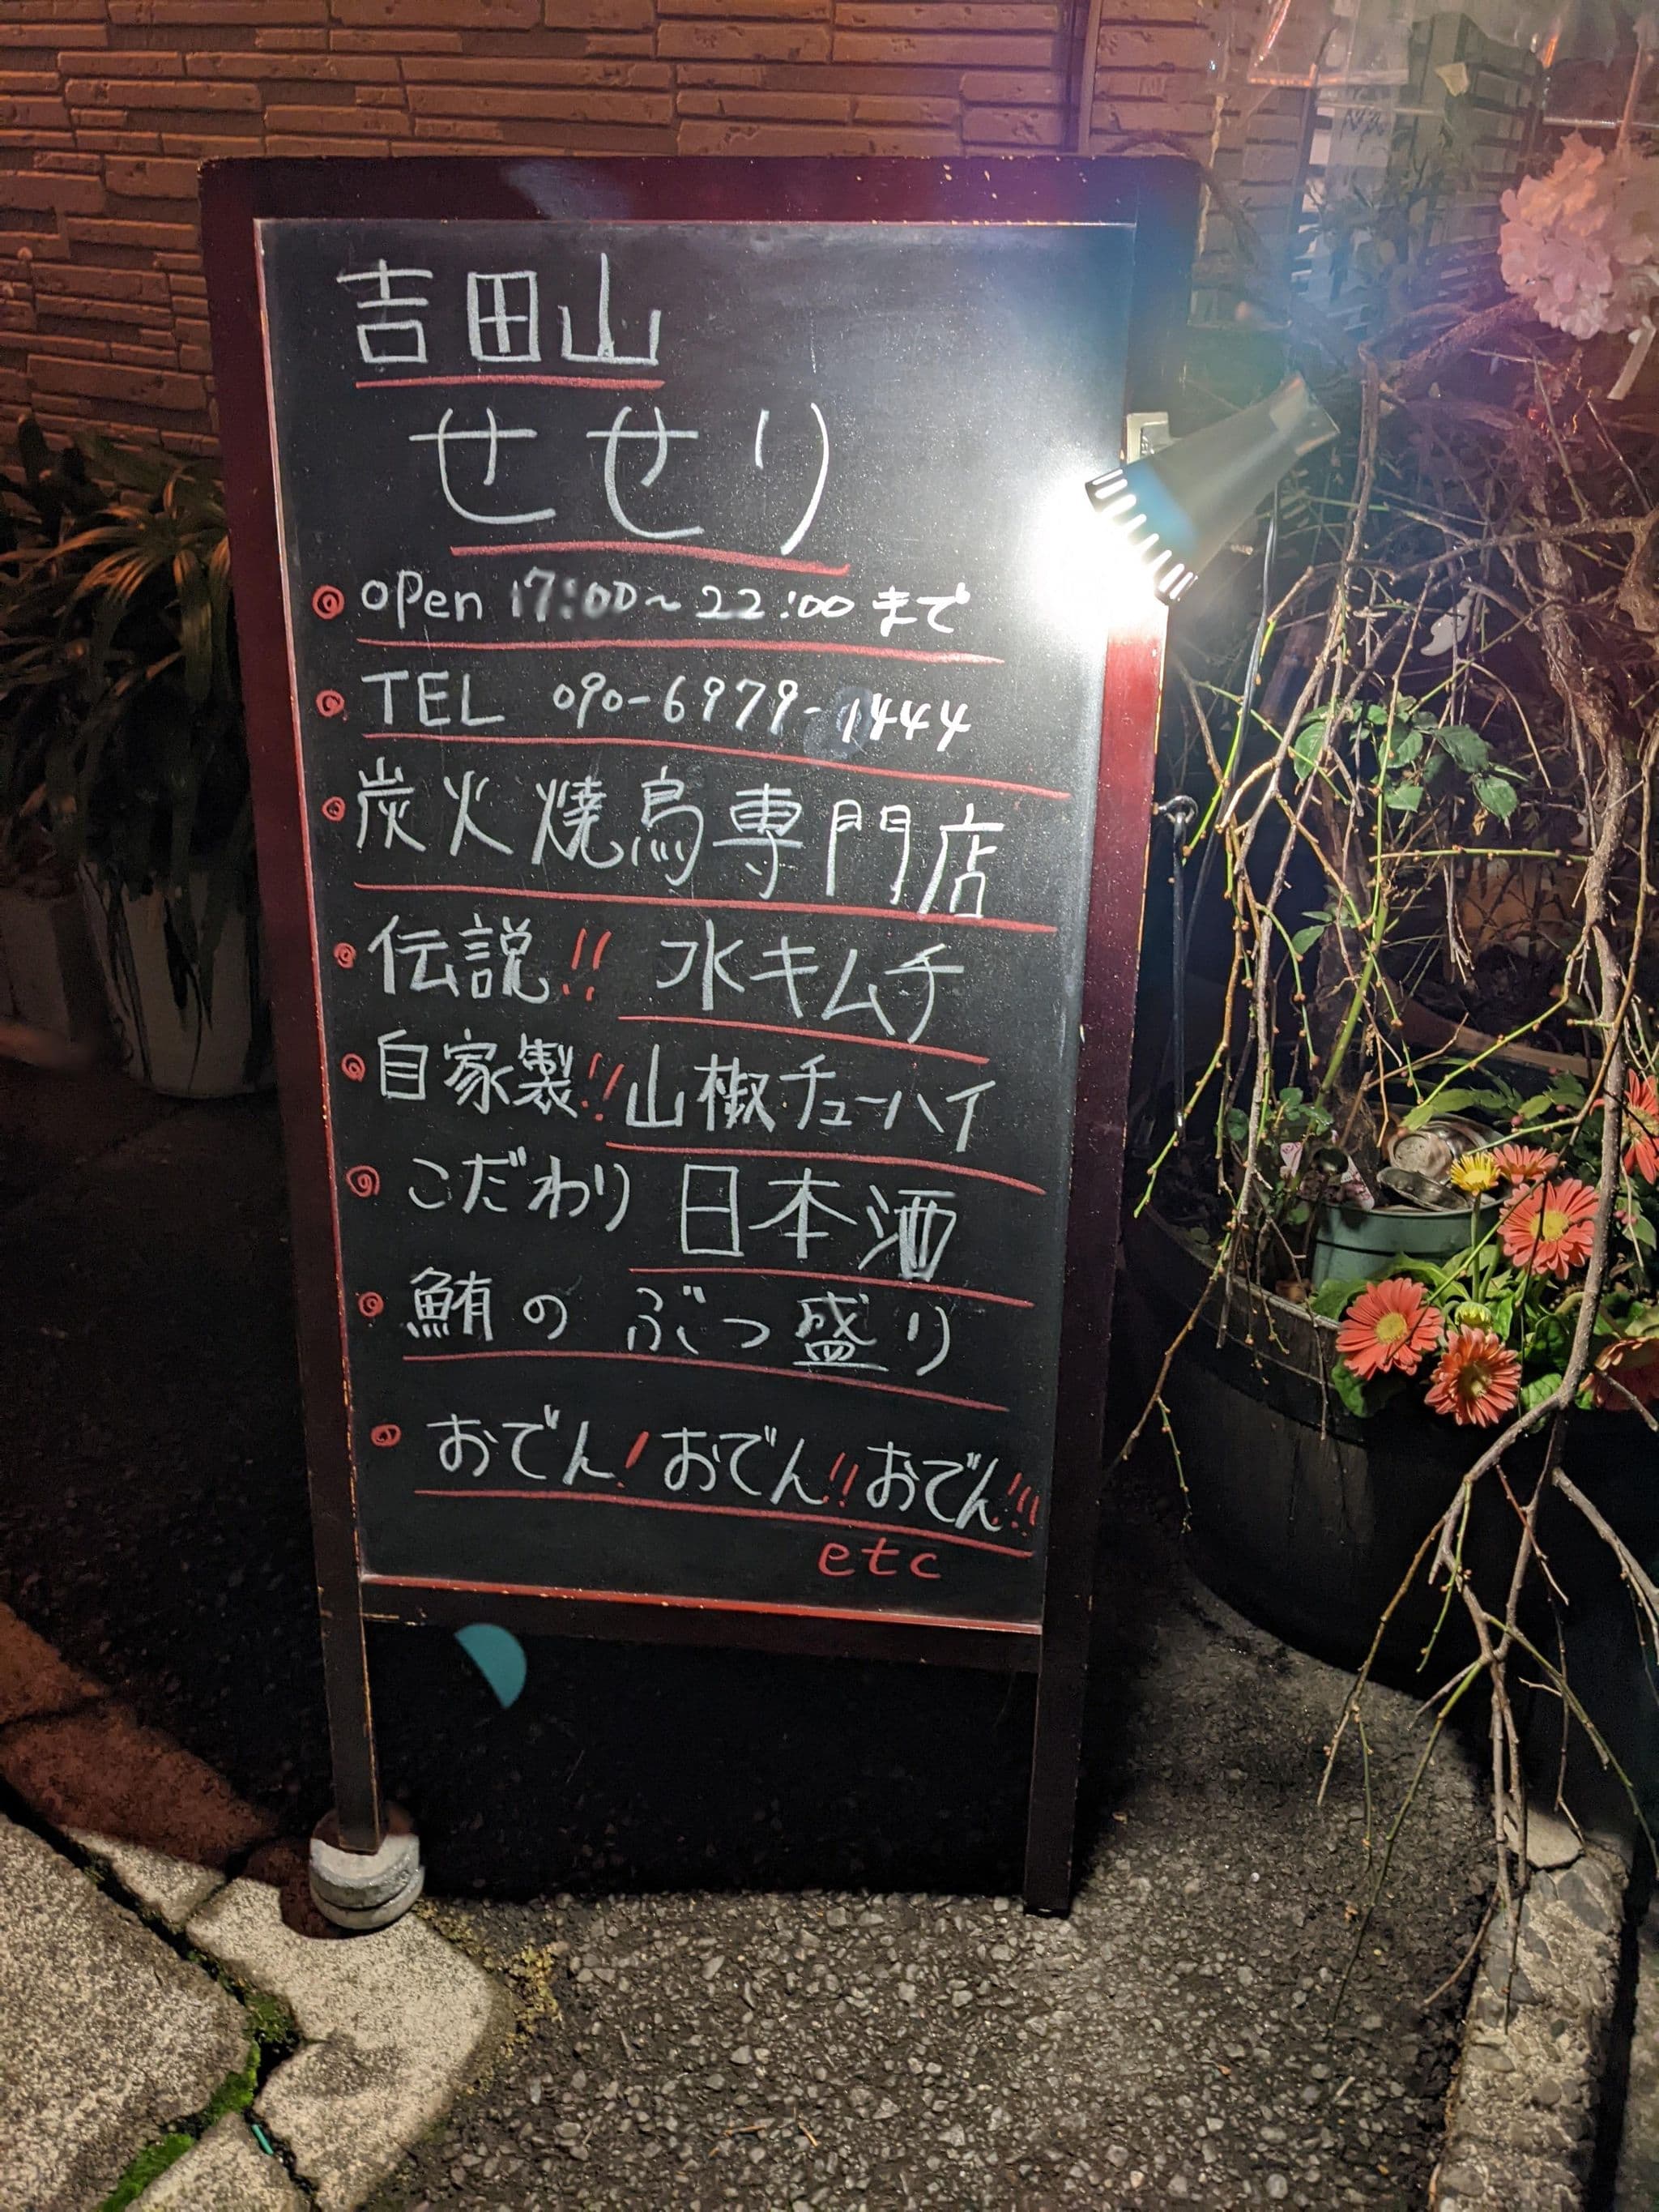 吉田山
せせり
open 17:00~22:00 まで
TEL 090-6979-1444
炭火焼鳥専門店
伝説!! 水キムチ
自家製!! 山椒チューハイ
こだわり 日本酒
鮪の ぶつ盛り
おでん! おでん!! おでん!!!
etc